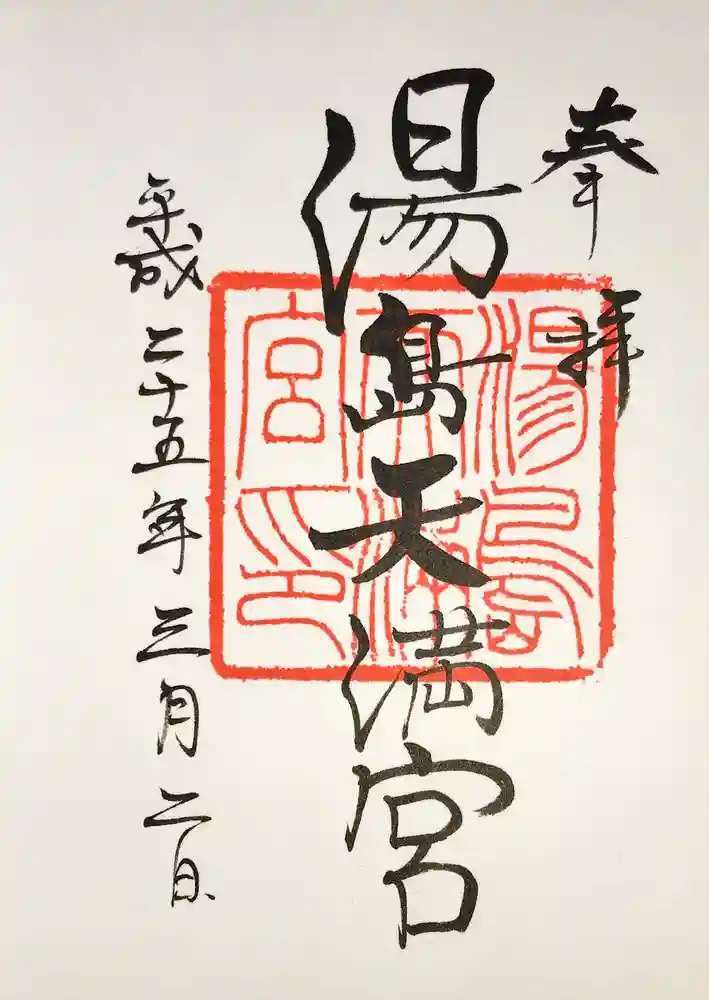 奉拝
湯島天満宮
平成二十五年三月二日
湯島天満宮印